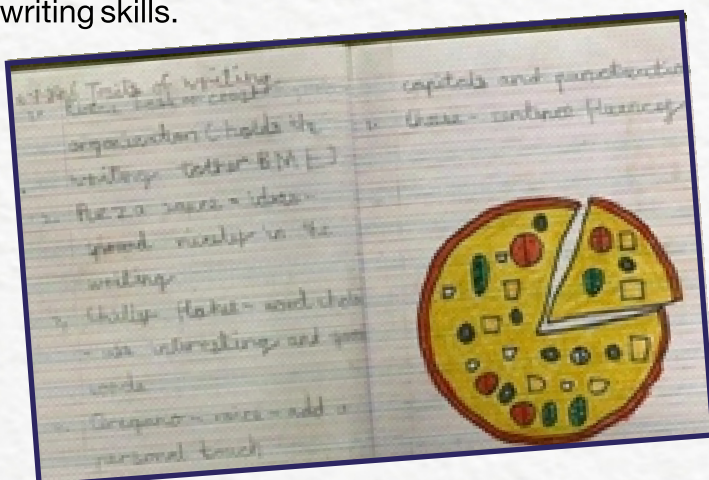 writing skills.
6 Traits of writing
organization (holds the
writing together BME)
2. Pizza sauce = ideas -
spread nicely in the
writing
3. Chilly flakes - word choice
- use interesting and
words
Oregano - voice - add a
personal touch
capitals and punctuation
Cheese - sentence fluency